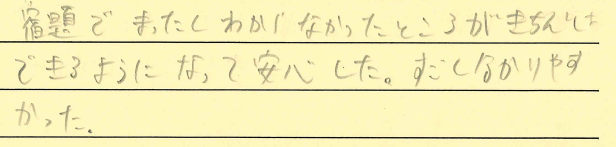 宿題でまったくわからなかったところがきちんと
できるようになって安心した。すごくわかりやす
かった。